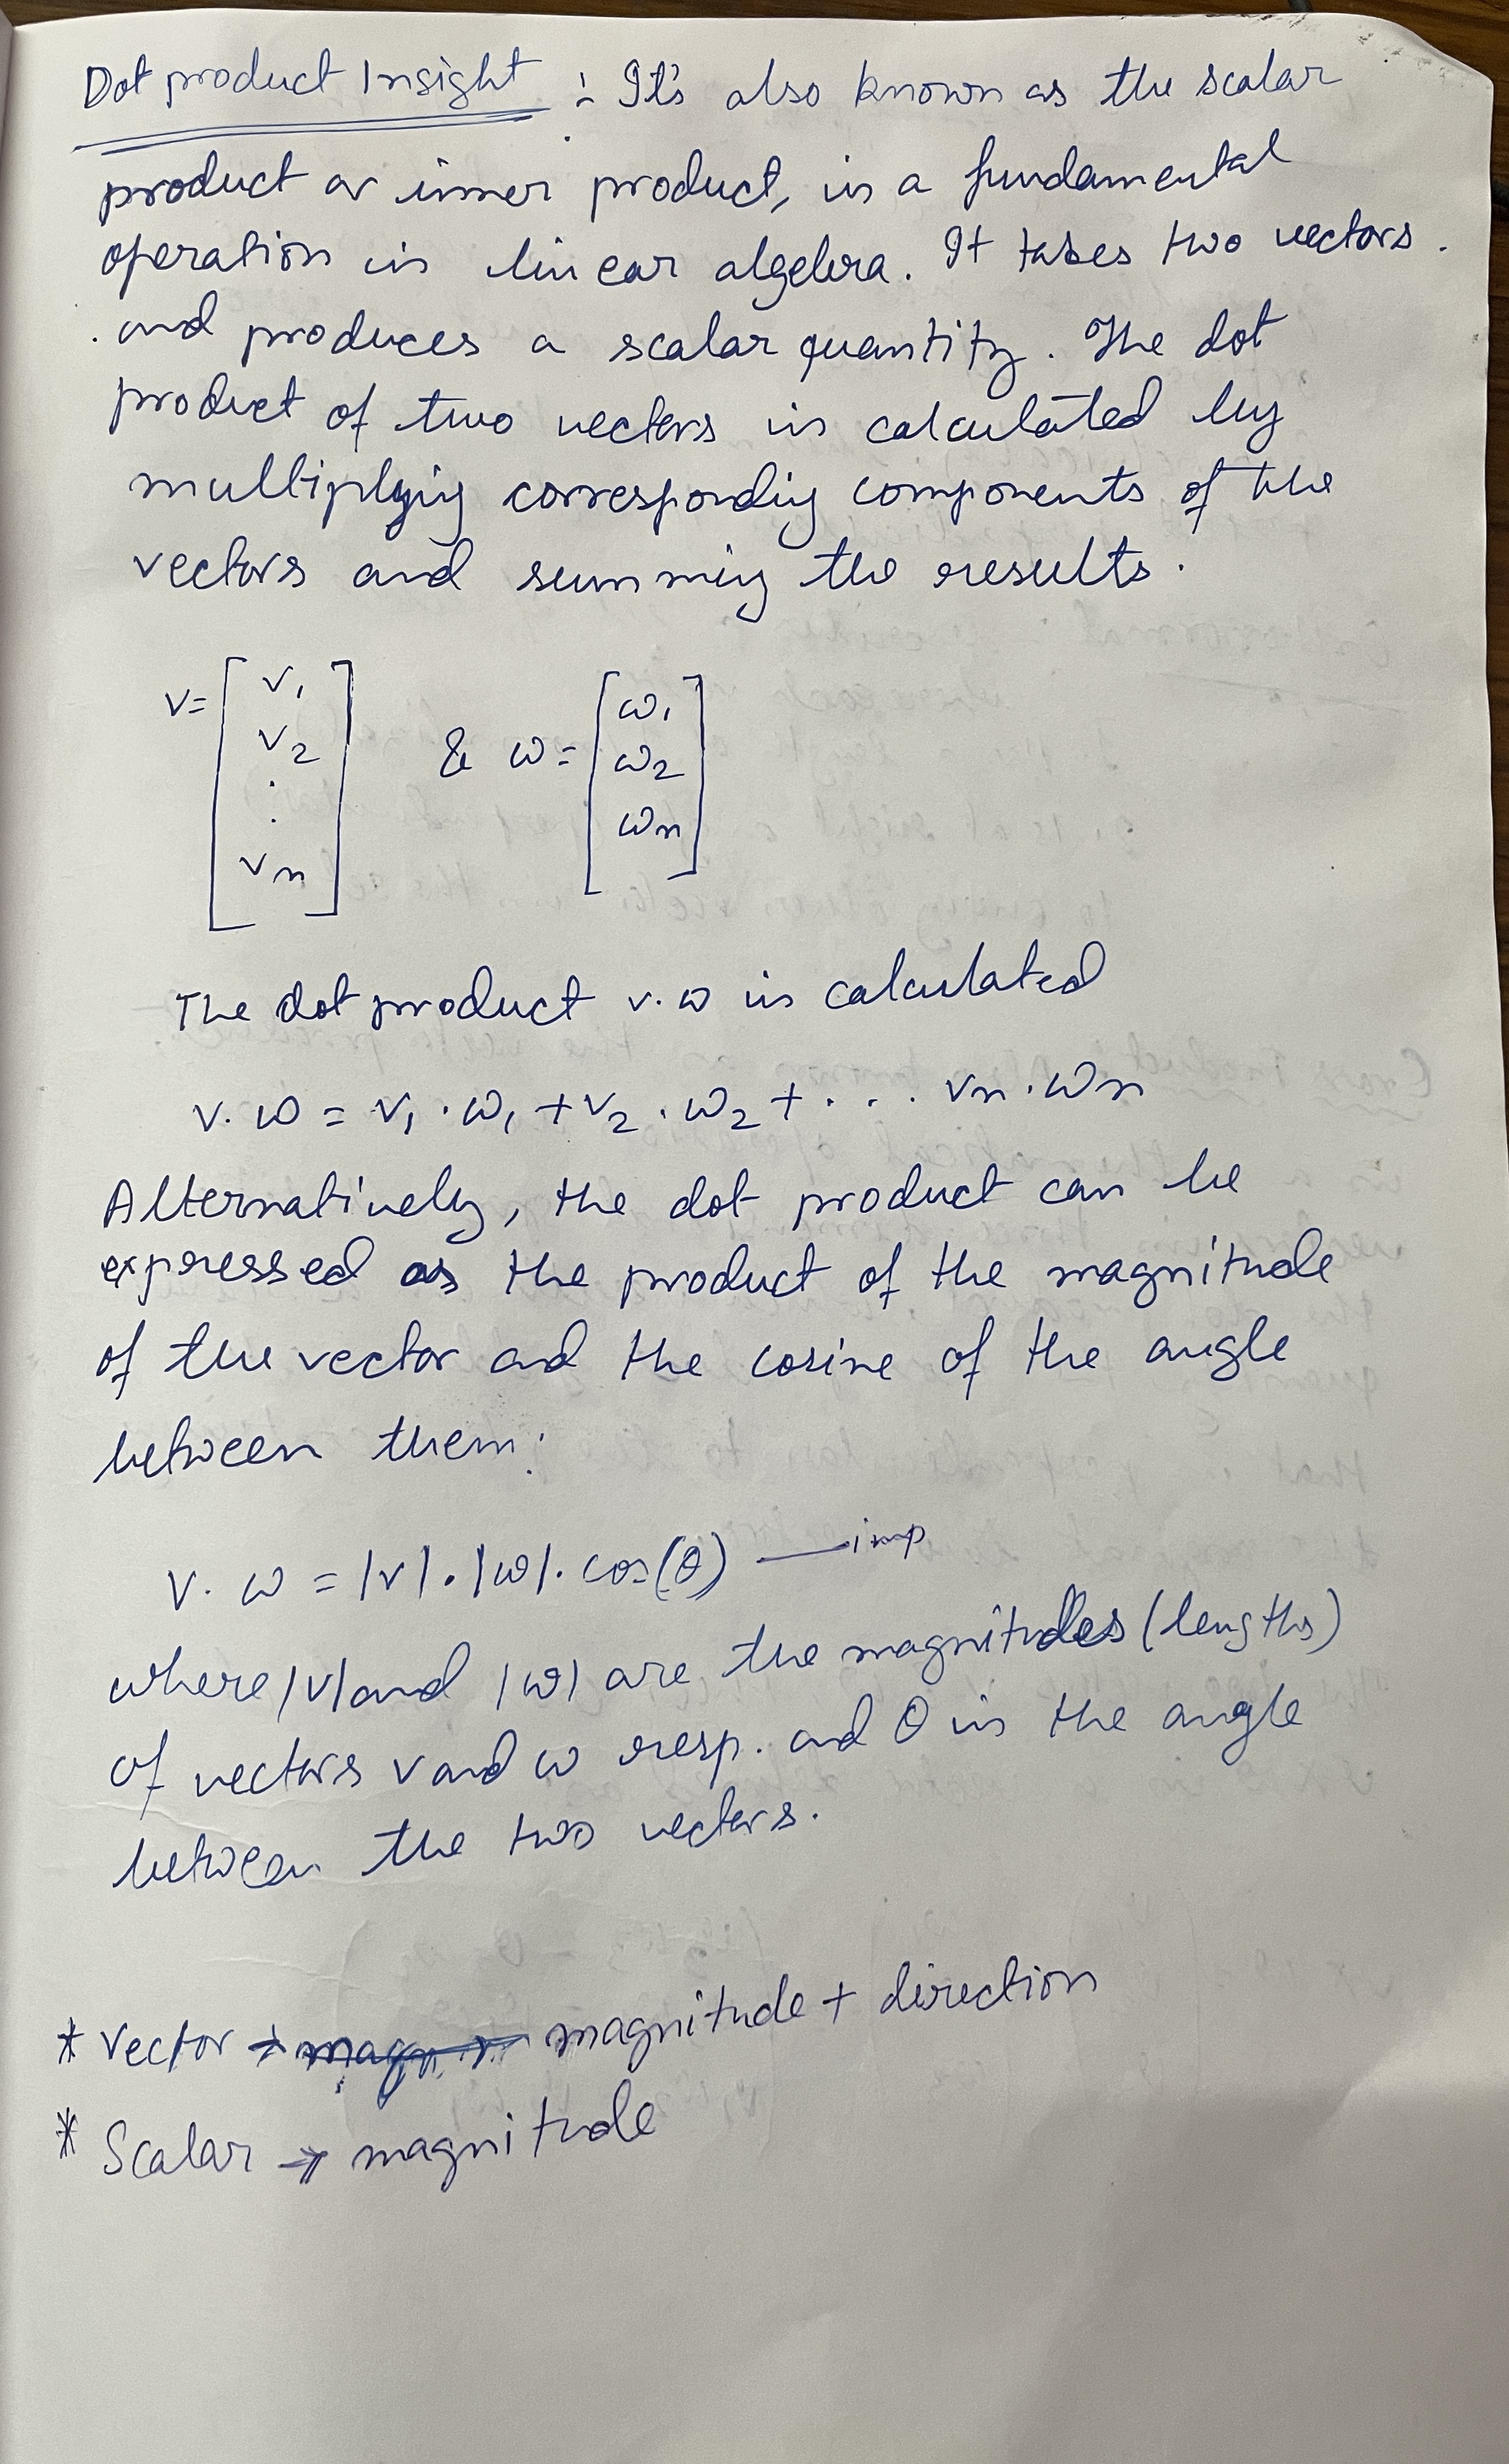 Dot product Insight : It's also known as the scalar
product or inner product, is a fundamental
operation in linear algebra. It takes two vectors.
and produces a scalar quantity. The dot
product of two vectors is calculated by
multiplying corresponding components of the
vectors and summing the results.
v = [ v1 v2 . . vn ] & w = [ w1 w2 wn ]
The dot product v.w is calculated
v. w = v1 . w1 + v2 . w2 + . . . vn . wn
Alternatively, the dot product can be
expressed as the product of the magnitude
of the vector and the cosine of the angle
between them:
v. w = |v| . |w| . cos(θ) — imp
where |v| and |w| are the magnitudes (lengths)
of vectors v and w resp. and θ is the angle
between the two vectors.
* Vector → magnitude + direction
* Scalar → magnitude